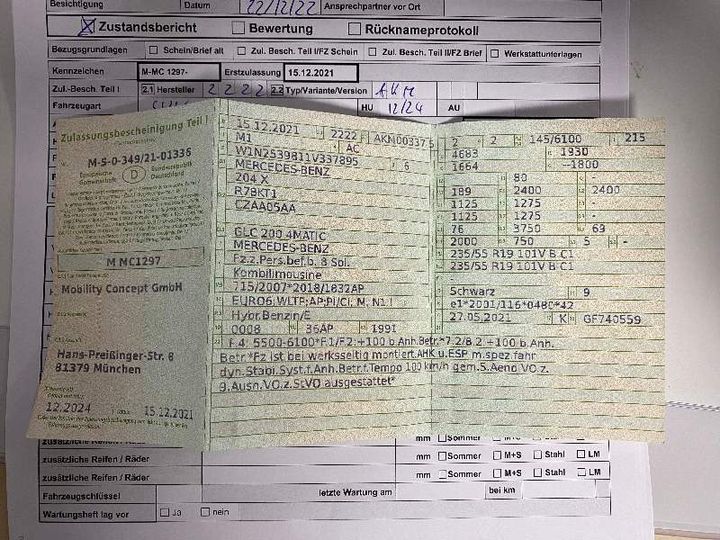 Besichtigung Datum 22/12/22 Ansprechpartner vor Ort
Zustandsbericht Bewertung Rücknahmeprotokoll
Bezugsgrundlagen Schein/Brief alt Zul. Besch. Teil I/FZ Schein Zul. Besch. Teil II/FZ Brief Werkstattunterlagen
Kennzeichen M-MC 1297- Erstzulassung 15.12.2021
Zul.-Besch. Teil I 2.1 Hersteller 2222 2.2 Typ/Variante/Version AKM
Fahrzeugart HU 12/24 AU
Zulassungsbescheinigung Teil I
M-S-0-349/21-01336
Europäische Gemeinschaft D Bundesrepublik Deutschland
M MC1297
Mobility Concept GmbH
Hans-Preißinger-Str. 8
81379 München
12.2024 15.12.2021
15.12.2021 2222 AKM00337 5
M1 AC
W1N2539811V337895 6
MERCEDES-BENZ
204 X
R7BKT1
CZAA05AA
GLC 200 4MATIC
MERCEDES-BENZ
Fz.z.Pers.bef.b. 8 Spl.
Kombilimousine
715/2007*2018/1832AP
EURO6;WLTP;AP;PI/CI; M, N1 I
Hybr.Benzin/E
0008 36AP 1991
F.4: 5500-6100*F.1/F.2:+100 b.Anh.Betr.*7.2/8.2:+100 b.Anh.
Betr.*Fz ist bei werksseitig montiert.AHK u.ESP m.spez.fahr
dyn.Stabi.Syst.f.Anh.Betr.f.Tempo 100 km/h gem.5.Aend VO.z.
9.Ausn.VO.z.StVO ausgestattet*
2 2 145/6100 215
4683 1930
1664 --1800
80 -
189 2400 2400
1125 1275 -
1125 1275 -
76 3750 69
2000 750 5 -
235/55 R19 101V B C1
235/55 R19 101V B C1
Schwarz 9
e1*2001/116*0480*42
27.05.2021 K GF740559
mm Sommer M+S Stahl LM
zusätzliche Reifen / Räder mm Sommer M+S Stahl LM
zusätzliche Reifen / Räder mm Sommer M+S Stahl LM
Fahrzeugschlüssel letzte Wartung am bei km
Wartungsheft lag vor Ja nein